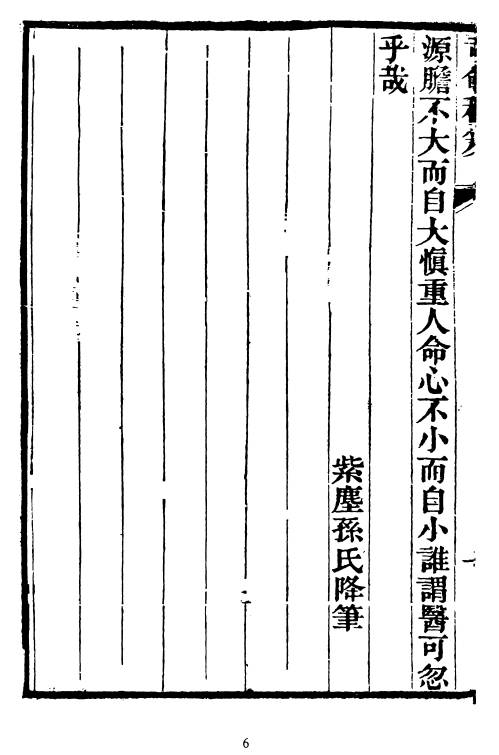 源膽不大而自大慎重人命心不小而自小誰謂醫可忽
乎哉
紫塵孫氏降筆
6